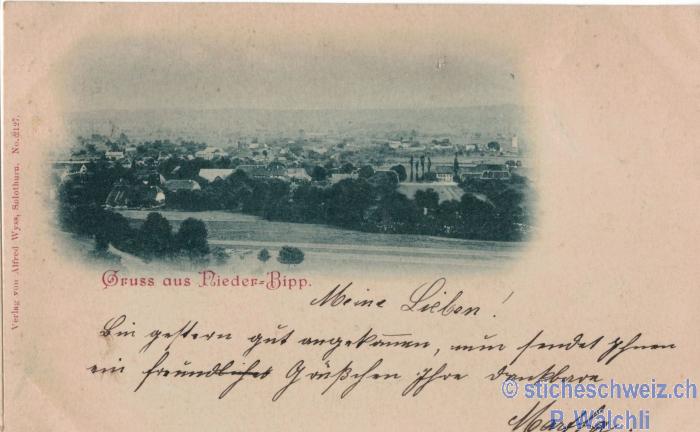 Verlag von Alfred Wyss, Solothurn. No. 2127.
Gruss aus Nieder-Bipp.
Meine Lieben!
Bin gestern gut angekommen, nun sendet Ihnen
ein freundliches Grüßchen Ihre dankbare
Martha.
© sticheschweiz.ch
P. Wälchli